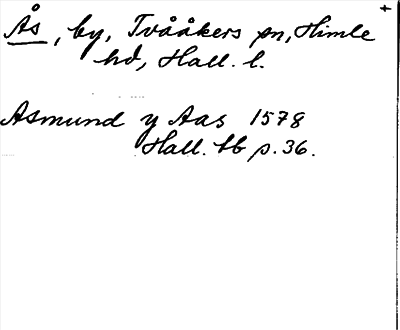 Ås, by, Tvååkers sn, Himle +
hd, Hall. l.
Asmund y Aas 1578
Hall. tb p. 36.